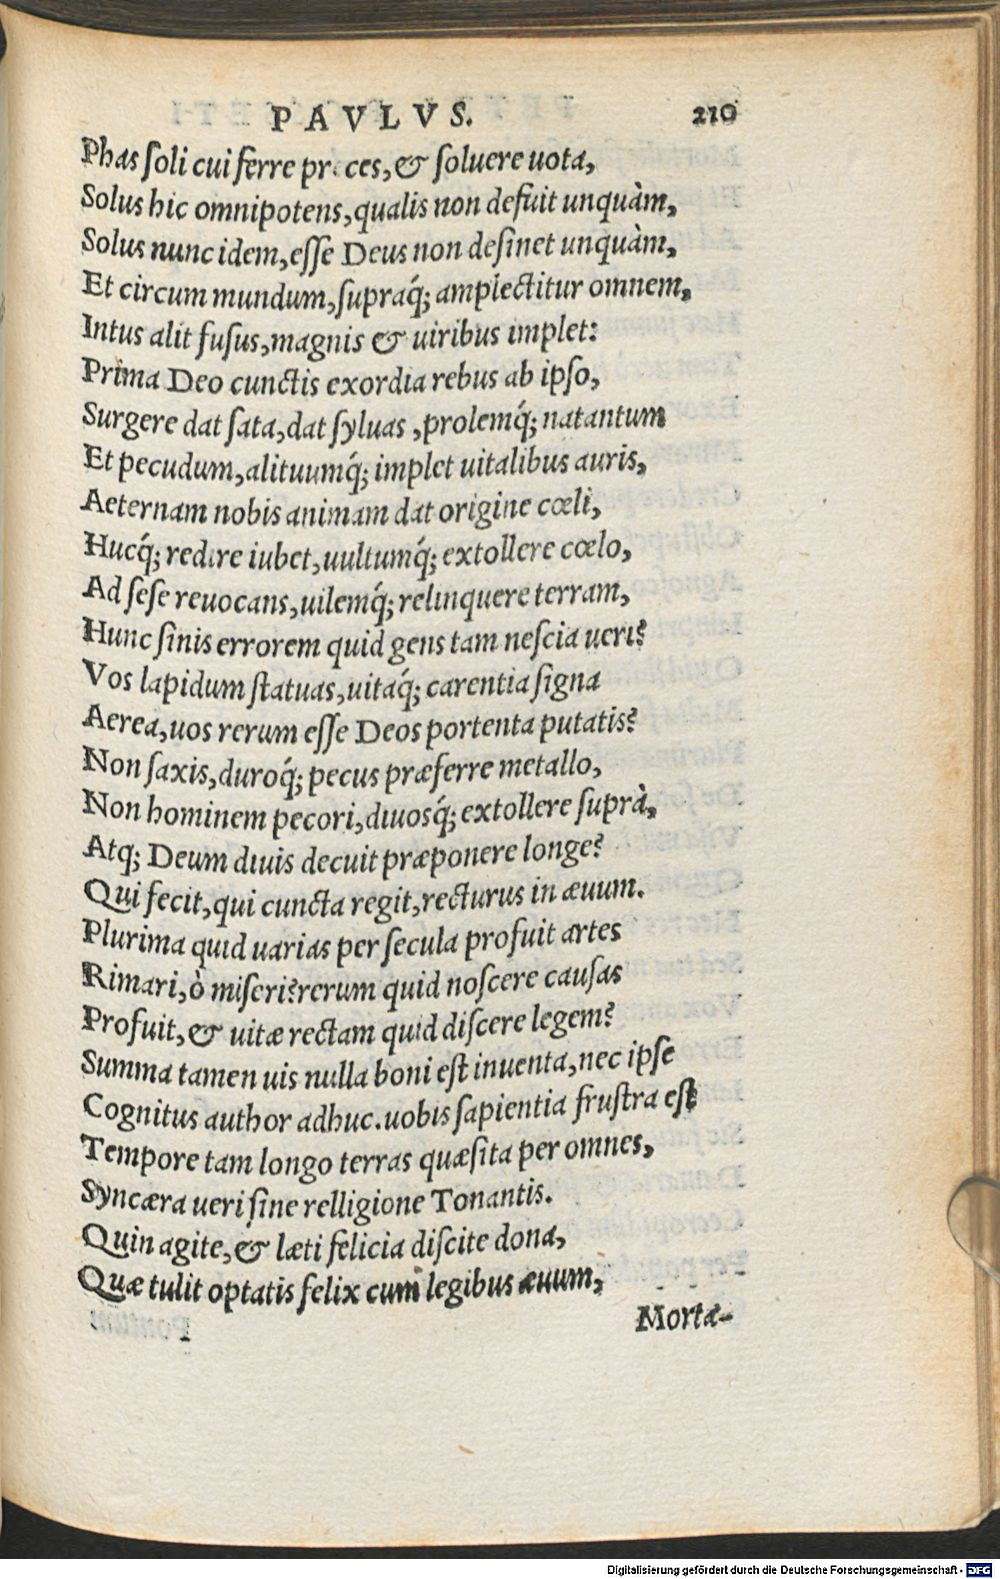 PAVLVS. 210
Phas soli cui ferre preces, & soluere uota,
Solus hic omnipotens, qualis non defuit unquàm,
Solus nunc idem, esse Deus non desinet unquàm,
Et circum mundum, supraq́; amplectitur omnem,
Intus alit fusus, magnis & uiribus implet:
Prima Deo cunctis exordia rebus ab ipso,
Surgere dat sata, dat syluas, prolemq́; natantum
Et pecudum, alituumq́; implet uitalibus auris,
Aeternam nobis animam dat origine cœli,
Hucq́; redire iubet, uultumq́; extollere cœlo,
Ad sese reuocans, uilemq́; relinquere terram,
Hunc sinis errorem quid gens tam nescia ueri?
Vos lapidum statuas, uitaq́; carentia signa
Aerea, uos rerum esse Deos portenta putatis?
Non saxis, duroq́; pecus præferre metallo,
Non hominem pecori, diuosq́; extollere suprà,
Atq; Deum diuis decuit præponere longe?
Qui fecit, qui cuncta regit, recturus in æuum.
Plurima quid uarias per secula profuit artes
Rimari, ò miseri? rerum quid noscere causas
Profuit, & uitæ rectam quid discere legem?
Summa tamen uis nulla boni est inuenta, nec ipse
Cognitus author adhuc. uobis sapientia frustra est
Tempore tam longo terras quæsita per omnes,
Syncæra ueri sine relligione Tonantis.
Quin agite, & læti felicia discite dona,
Quæ tulit optatis felix cum legibus æuum,
Mortæ-
Digitalisierung gefördert durch die Deutsche Forschungsgemeinschaft - DFG